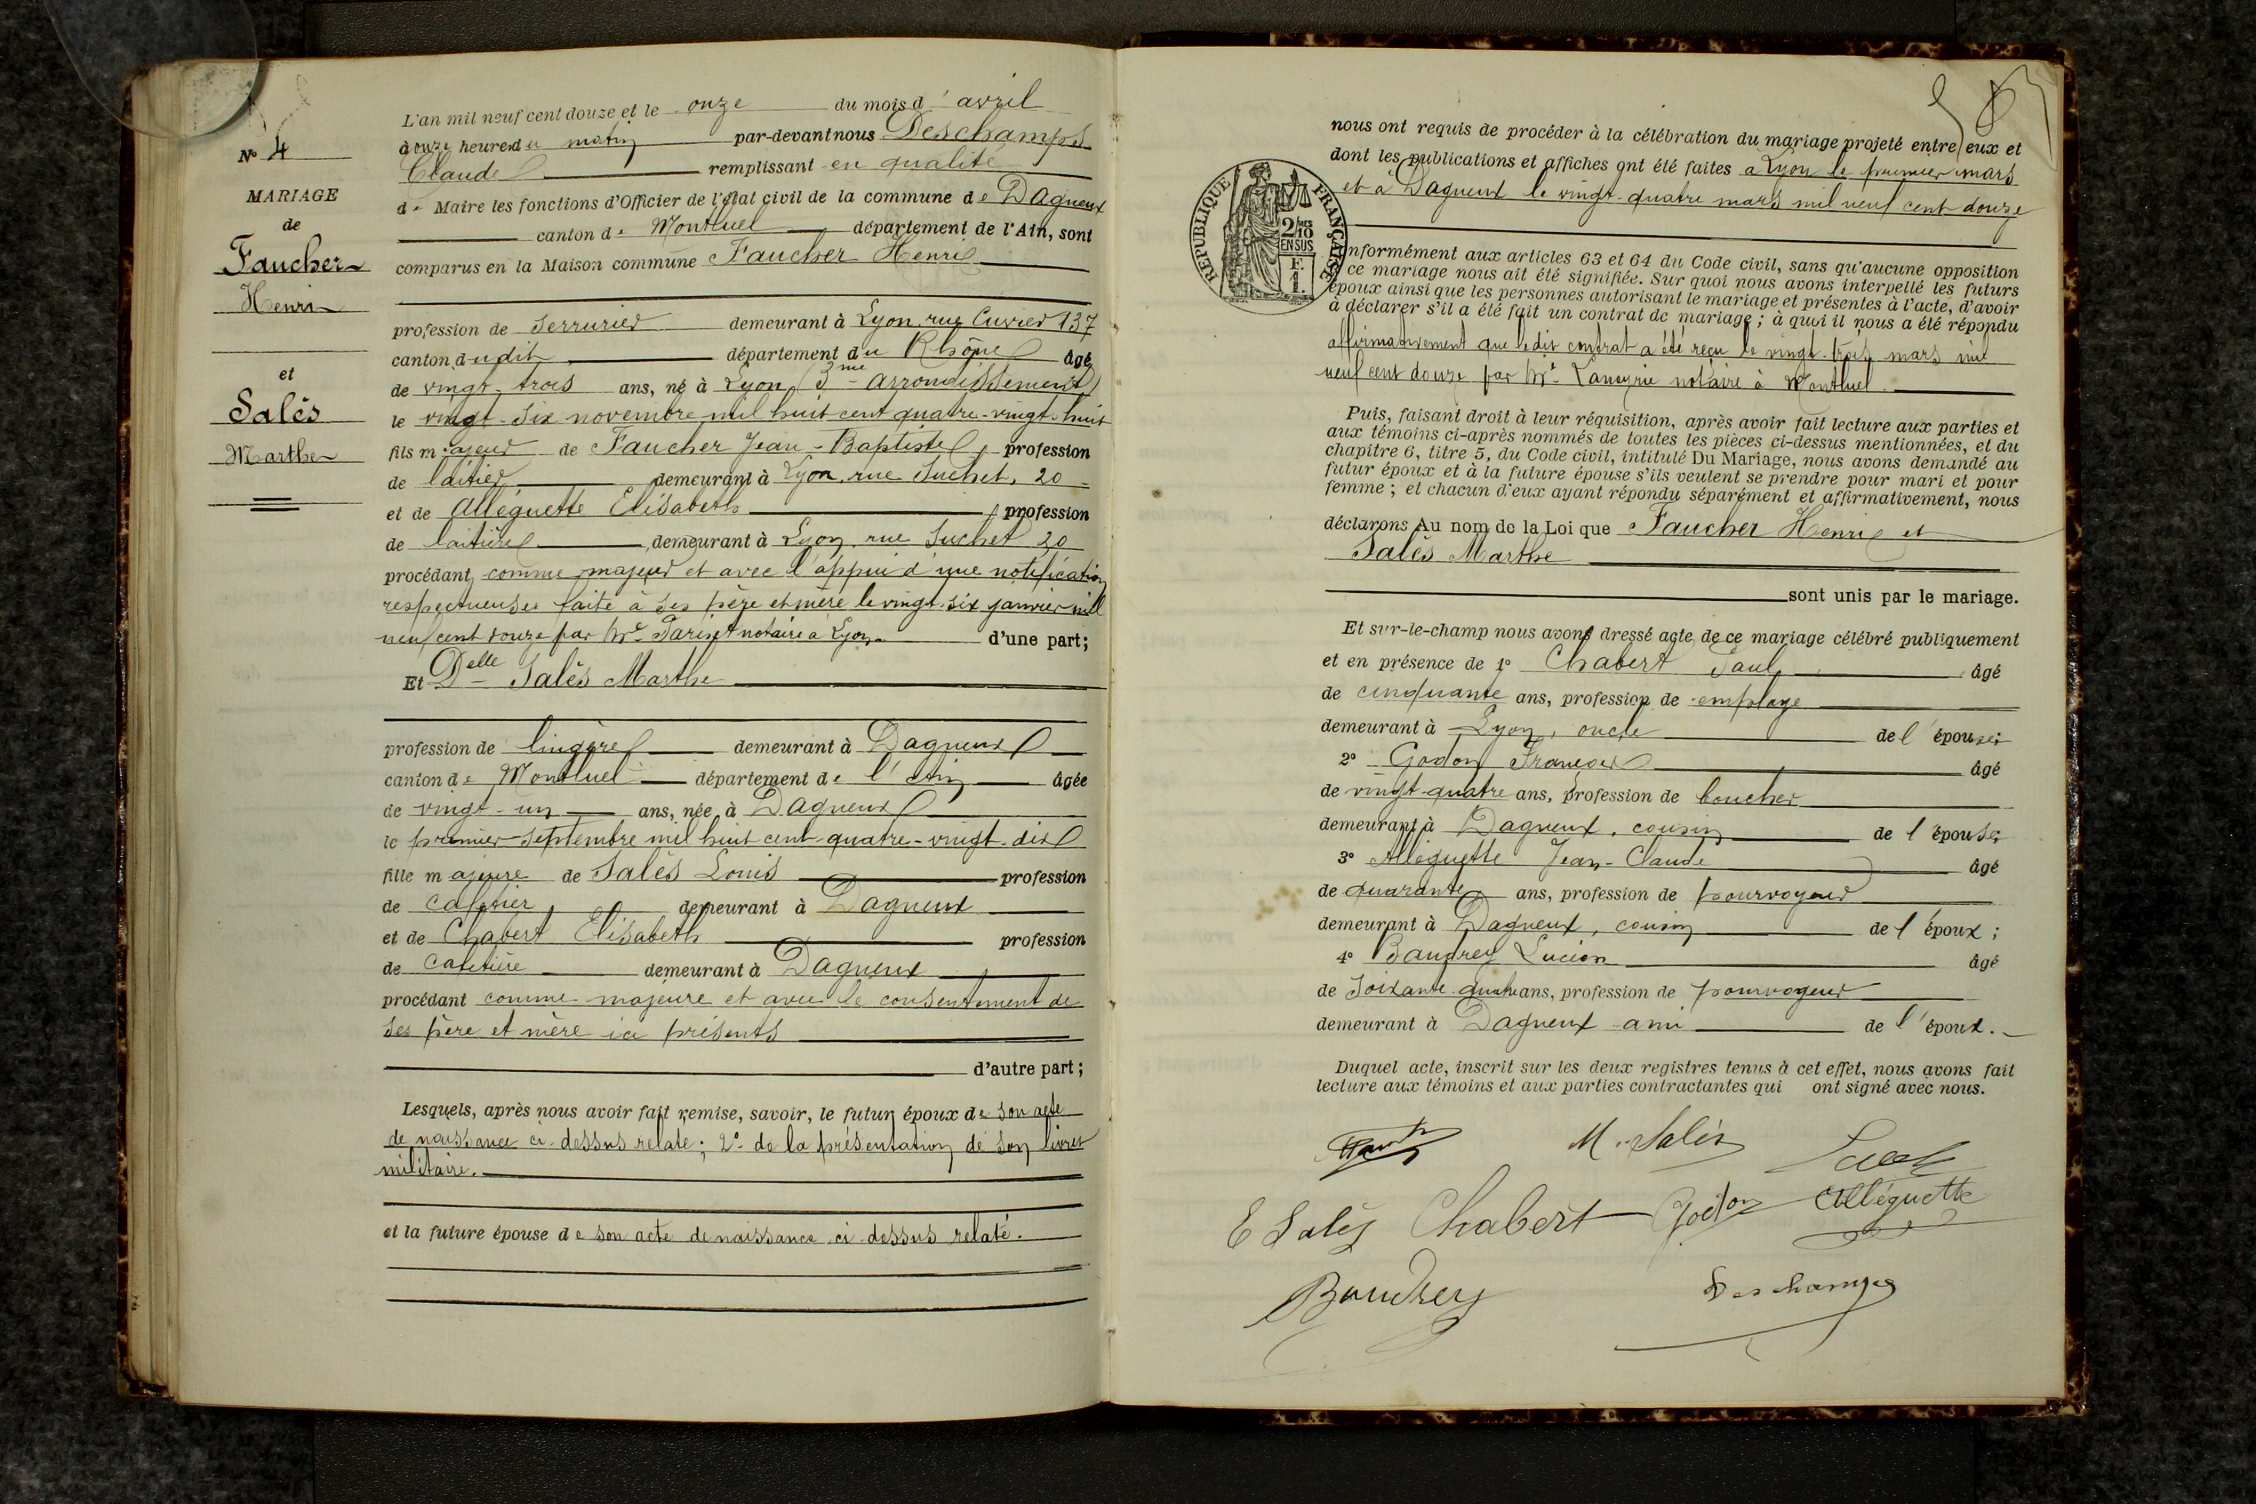 L'an mil neuf cent douze et le onze du mois d'avril
à onze heures du matin par-devant nous Deschamps
Claude remplissant en qualité
de Maire les fonctions d'Officier de l'état civil de la commune de Dagneux
canton de Montluel département de l'Ain, sont
comparus en la Maison commune Faucher Henri
profession de serrurier demeurant à Lyon, rue Cuvier 137
canton dudit département du Rhône âgé
de vingt-trois ans, né à Lyon (3me arrondissement)
le vingt-six novembre mil huit cent quatre-vingt-huit
fils majeur de Faucher Jean-Baptiste, profession
de laitier demeurant à Lyon, rue Suchet, 20
et de Alléguette Elisabeth, profession
de laitière, demeurant à Lyon, rue Suchet 20
procédant comme majeur et avec l'appui d'une notification
respectueuse faite à ses père et mère le vingt-six janvier mil
neuf cent douze par Me Pariset notaire à Lyon d'une part;
Et Delle Salès Marthe
profession de lingère demeurant à Dagneux
canton de Montluel département de l'Ain âgée
de vingt-un ans, née à Dagneux
le premier septembre mil huit cent quatre-vingt-dix
fille majeure de Salès Louis profession
de cafetier, demeurant à Dagneux
et de Chabert Elisabeth profession
de cafetière demeurant à Dagneux
procédant comme majeure et avec le consentement de
ses père et mère ici présents
d'autre part;
Lesquels, après nous avoir fait remise, savoir, le futur époux de son acte
de naissance ci-dessus relaté; 2° de la présentation de son livret
militaire.
et la future épouse de son acte de naissance ci-dessus relaté.
No 4
MARIAGE
de
Faucher
Henri
et
Salès
Marthe
nous ont requis de procéder à la célébration du mariage projeté entre eux et
dont les publications et affiches ont été faites à Lyon le premier mars
et à Dagneux le vingt-quatre mars mil neuf cent douze
RÉPUBLIQUE FRANÇAISE
2/10
EN SUS
F.
1.
nformément aux articles 63 et 64 du Code civil, sans qu'aucune opposition
ce mariage nous ait été signifiée. Sur quoi nous avons interpellé les futurs
époux ainsi que les personnes autorisant le mariage et présentes à l'acte, d'avoir
à déclarer s'il a été fait un contrat de mariage; à quoi il nous a été répondu
affirmativement que ledit contrat a été reçu le vingt-trois mars mil
neuf cent douze par Me notaire à Montluel.
Puis, faisant droit à leur réquisition, après avoir fait lecture aux parties et
aux témoins ci-après nommés de toutes les pièces ci-dessus mentionnées, et du
chapitre 6, titre 5, du Code civil, intitulé Du Mariage, nous avons demandé au
futur époux et à la future épouse s'ils veulent se prendre pour mari et pour
femme; et chacun d'eux ayant répondu séparément et affirmativement, nous
déclarons Au nom de la Loi que Faucher Henri et
Salès Marthe
sont unis par le mariage.
Et sur-le-champ nous avons dressé acte de ce mariage célébré publiquement
et en présence de 1° Chabert Paul, âgé
de cinquante ans, profession de employé
demeurant à Lyon, oncle de l'épouse;
2° Godon François âgé
de vingt-quatre ans, profession de boucher
demeurant à Dagneux, cousin de l'épouse;
3° Alléguette Jean-Claude âgé
de quarante ans, profession de pourvoyeur
demeurant à Dagneux, cousin de l'époux;
4° Baudrey Lucien âgé
de soixante-quatre ans, profession de pourvoyeur
demeurant à Dagneux ami de l'époux.
Duquel acte, inscrit sur les deux registres tenus à cet effet, nous avons fait
lecture aux témoins et aux parties contractantes qui ont signé avec nous.
M. Salès
E Salès Chabert Godon Alléguette
Baudrey Deschamps